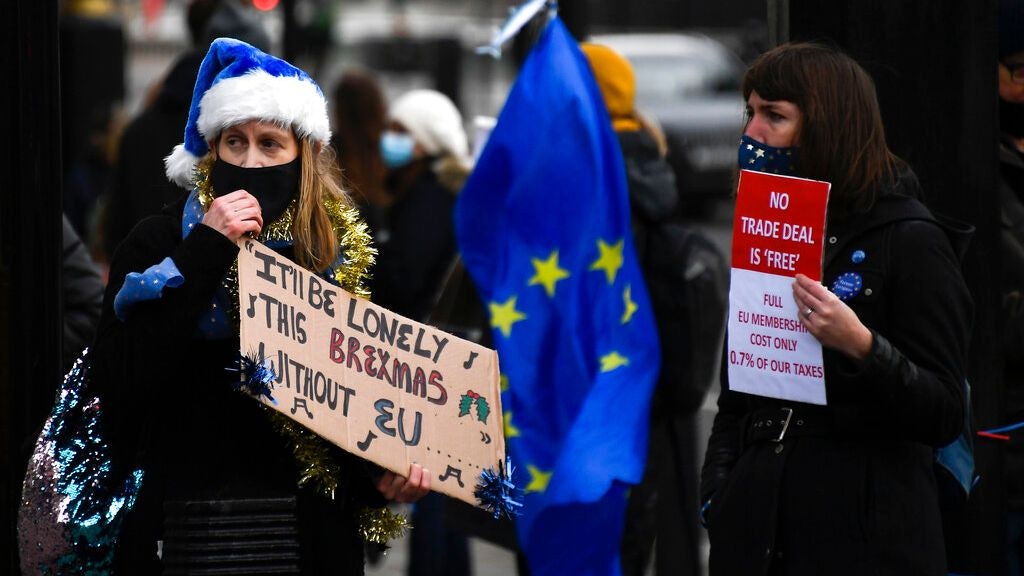 IT'll BE LONELY
THIS BREXMAS
WITHOUT EU.......
NO
TRADE DEAL
IS 'FREE'
FULL
EU MEMBERSHIP
COST ONLY
0.7% OF OUR TAXES